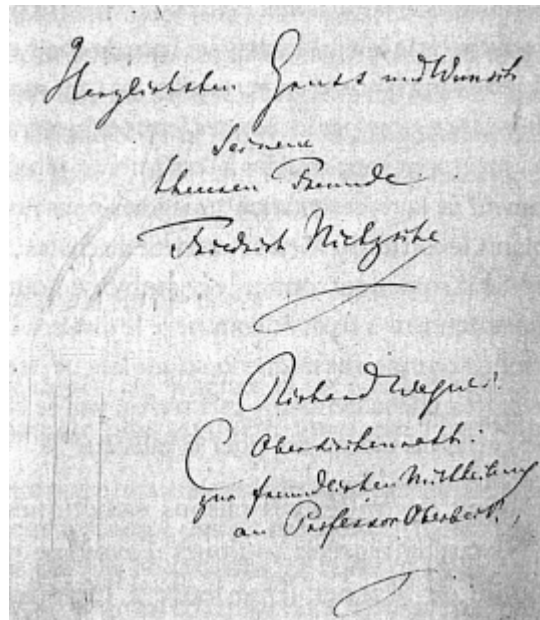 Herzlichsten Gruss und Wunsch
seinem
theuren Freunde
Friedrich Nietzsche
Richard Wagner
(Oberkirchenrath:
zur freundlichen Mittheilung
an Professor Overbeck)